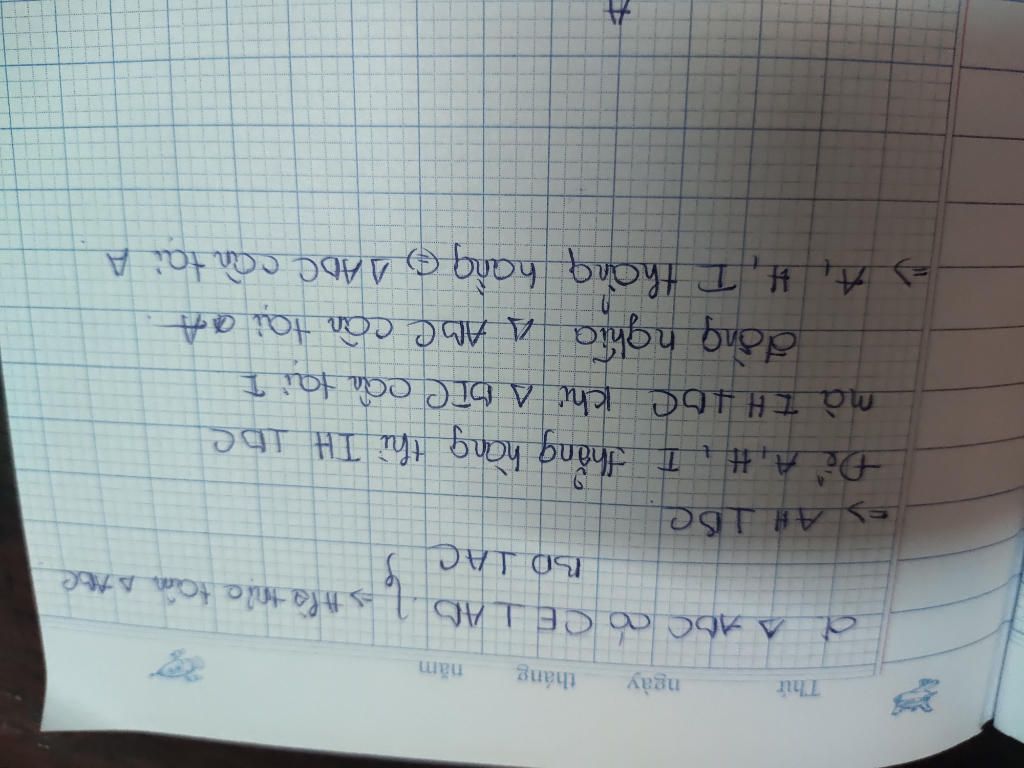 Thứ ngày tháng năm
d. Δ ABC có CE ⊥ AB } => H là trực tâm Δ ABC
BD ⊥ AC
=> AH ⊥ BC
Để A, H, I thẳng hàng thì IH ⊥ BC
mà IH ⊥ BC khi Δ BIC cân tại I
đồng nghĩa Δ ABC cân tại A
=> A, H, I thẳng hàng <=> Δ ABC cân tại A
A